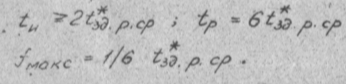 t_и ⩾ 2t*_зд. р. ср ; t_р = 6t*_зд. р. ср
f_макс = 1/6 t*_зд. р. ср .